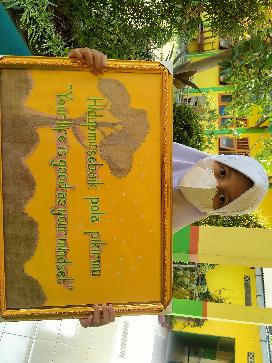 Hidupmu sebaik pola pikirmu
"Your life is good as your mindset"